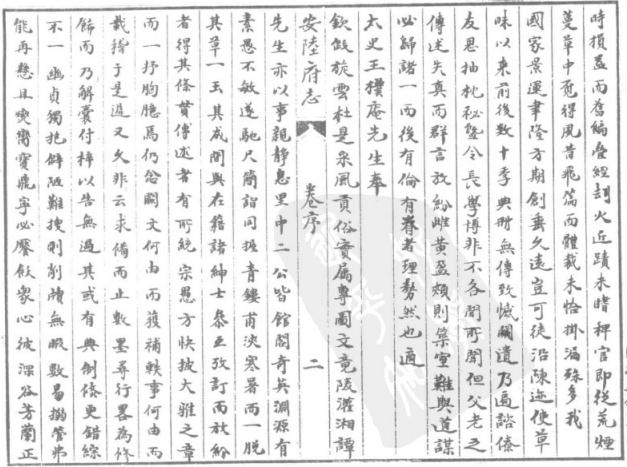 時損益而舊編疊經刼火近蹟未暗稗官即從荒煙
蔓草中覓得風昔飛篇而體裁未恰掛漏殊多我
國家景運聿隆方期創垂久遠豈可徒沿陳迹使草
昧以來前後數十季典冊無傳致慨闕遺乃遍諮僚
友思抽枕秘暨令長學博非不各聞所聞但父老之
傳述失真而群言放紛雌黃盈頰則築室難與道謀
必歸諸一而後有倫有脊者理勢然也適
太史王擴庵先生奉
欽假旋雲杜是采風貢俗實屬專圖文竟阪灌湘譚
安陸府志 卷序 二
先生亦以事親靜息里中二公皆館閣奇英淵源有
素愚不敏遂馳尺簡諮同握青鏤甫浹寒暑而一脫
其草一玉其成間與在籍諸紳士叅互攷訂而放紛
者得其條貫傳述者有所統宗愚方快披大雅之章
而一抒胸臆焉仍念闕文何由而獲補軼事何由而
載稽于是遐又久非云求備而止數墨尋行畧為修
飾而乃解囊付梓以告無過其或有典制條更錯綜
不一幽貞獨抱僻陋難搜則削牘無暇數易搦管弗
能再懸且奭鬻寶鼎寧必饜飫衆心彼深谷芳蘭正